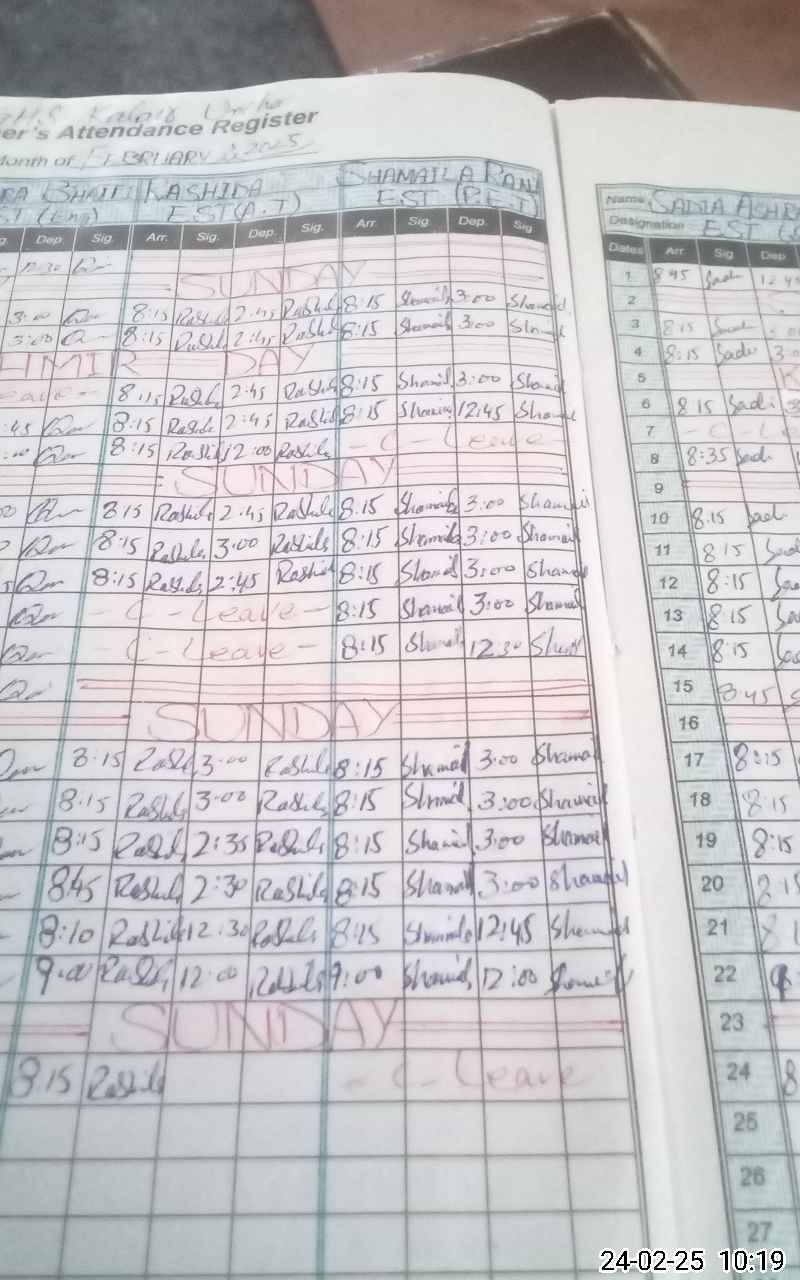 er's Attendance Register
Month of FEBRUARY 2025
BHATTI RASHIDA SHAMAILA RANI
EST (Eng) EST (A.T) EST (P.E.T)
Dep. Sig. Arr. Sig. Dep. Sig. Arr. Sig. Dep. Sig
SUNDAY
3:00 8:15 Rashida 2:45 Rashida 8:15 Shamaila 3:00 Shamaila
3:00 8:15 Rashida 2:45 Rashida 8:15 Shamaila 3:00
HMIR DAY
eave - 8:15 Rashida 2:45 Rashida 8:15 Shamaila 3:00 Shamaila
:45 8:15 Rashida 2:45 Rashida 8:15 Shamaila 12:45 Shamaila
8:15 Rashida 12:00 Rashida - C - Leave -
SUNDAY
8:15 Rashida 2:45 Rashida 8:15 Shamaila 3:00 Shamaila
8:15 Rashida 3:00 Rashida 8:15 Shamaila 3:00 Shamaila
8:15 Rashida 2:45 Rashida 8:15 Shamaila 3:00 Shamaila
- C - Leave - 8:15 Shamaila 3:00 Shamaila
- C - Leave - 8:15 Shamaila 12:30
SUNDAY
8:15 Rashida 3:00 Rashida 8:15 Shamaila 3:00 Shamaila
8:15 Rashida 3:00 Rashida 8:15 Shamaila 3:00 Shamaila
8:15 Rashida 2:35 Rashida 8:15 Shamaila 3:00 Shamaila
8:45 Rashida 2:30 Rashida 8:15 Shamaila 3:00 Shamaila
8:10 Rashida 12:30 Rashida 8:15 Shamaila 12:45 Shamaila
9:00 Rashida 12:00 Rashida 9:00 Shamaila 12:00 Shamaila
SUNDAY
8:15 Rashida - C - Leave
Name SADIA
Designation EST
Dates Arr Sig Dep
1 8:45 Sadi 12:4
2
3 8:15 Sadi
4 8:15 Sadi
5
6 8:15 Sadi
7 - C - Le
8 8:35 Sadi
9
10 8:15 Sadi
11 8:15
12 8:15
13 8:15
14 8:15
15 8:45
16
17 8:15
18 8:15
19 8:15
20 8:15
21
22
23
24 8
25
26
27
24-02-25 10:19